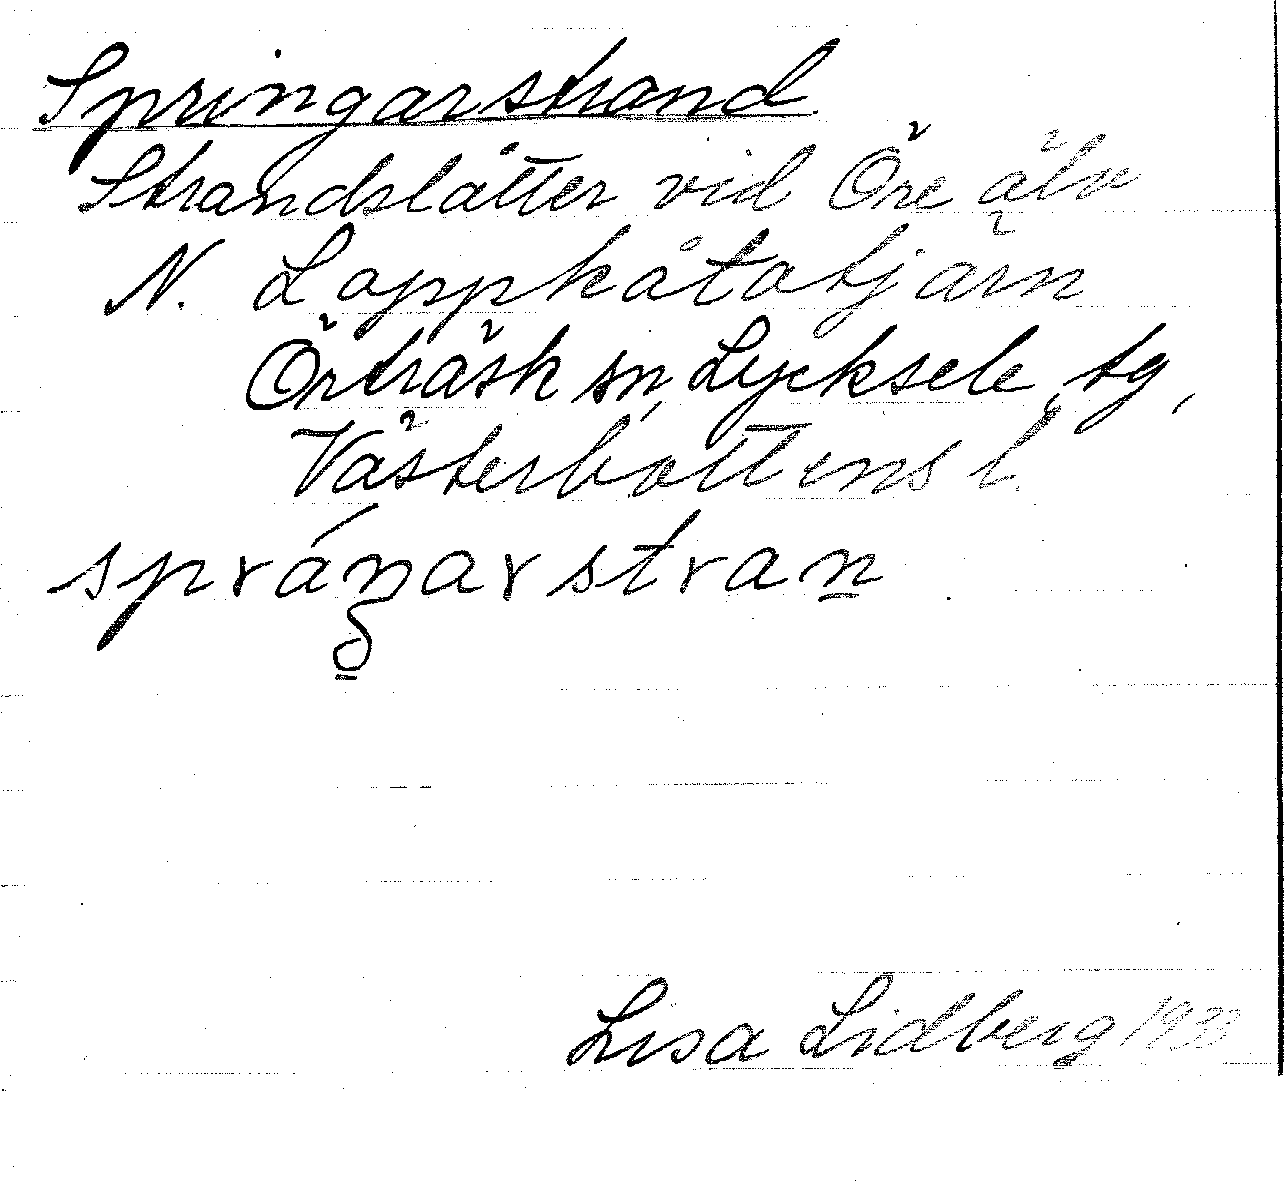 Springarstrand
Strandslåtter vid Öre älv
N. Lappkåtatjärn
Örträsk sn, Lycksele tg,
Västerbottens l.
spráŋarstran̲
Lisa Lidberg 1933